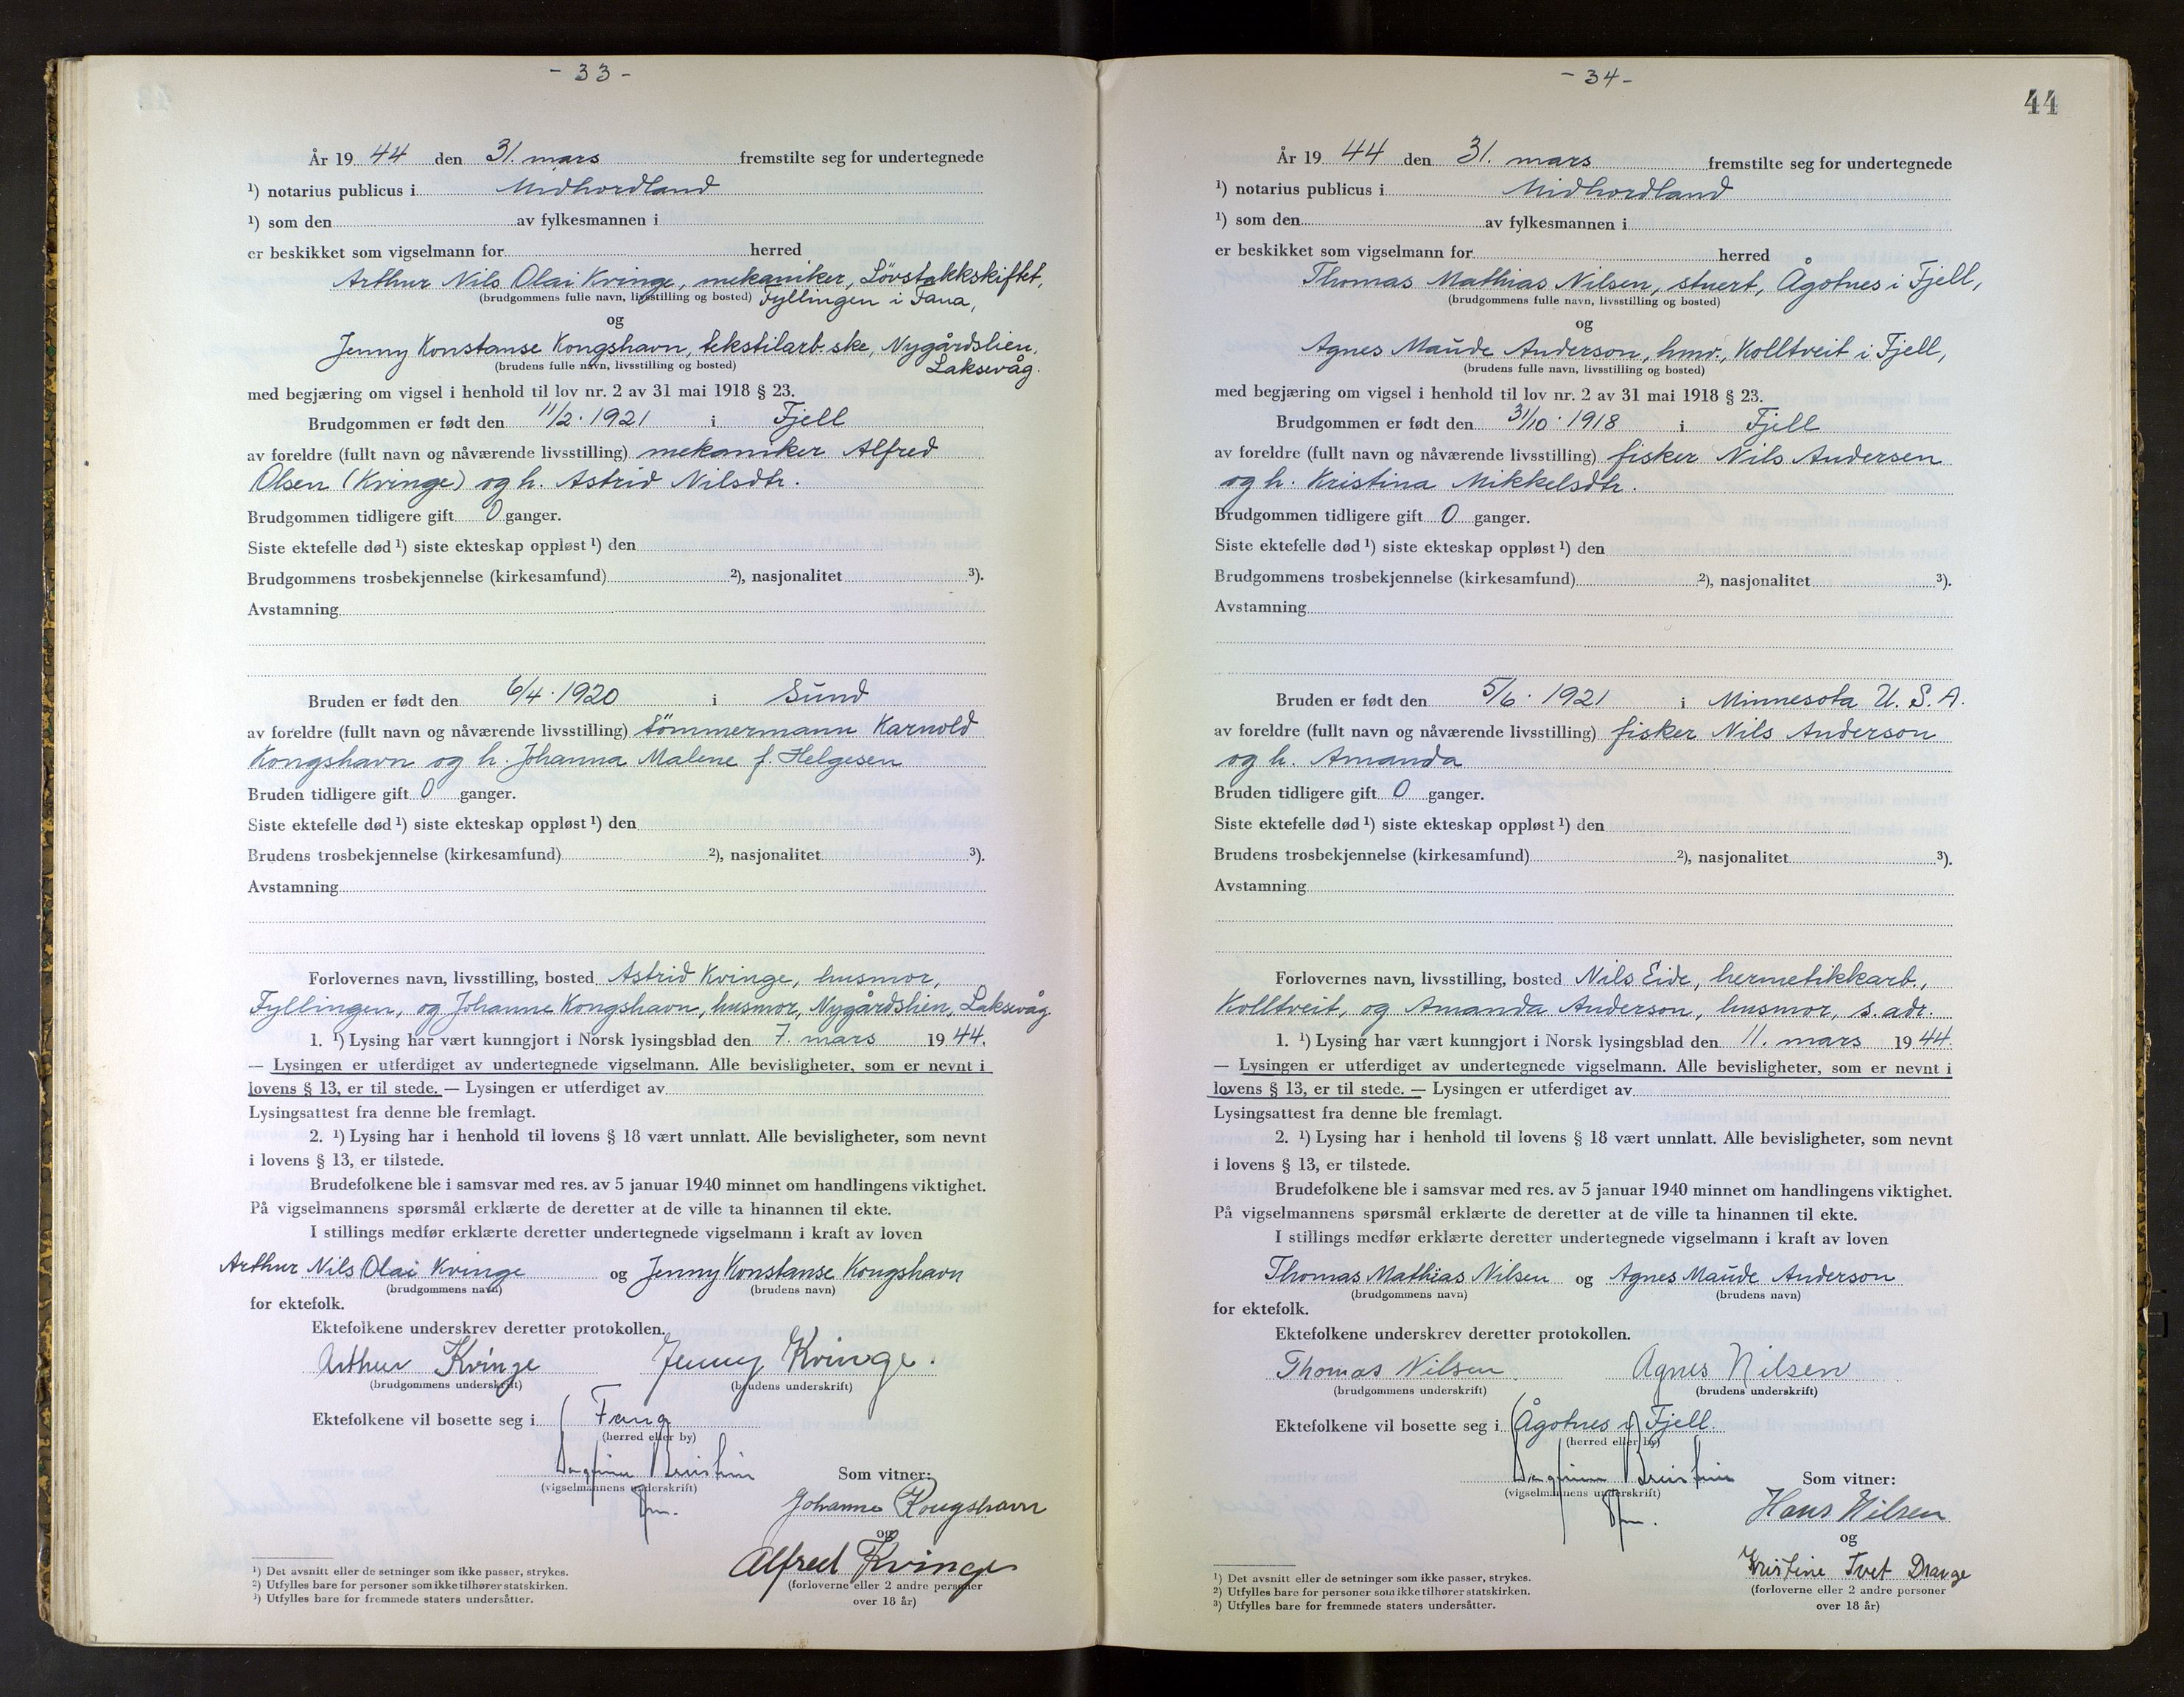 - 33 -
År 19 44 den 31. mars fremstilte seg for undertegnede
¹) notarius publicus i Midhordland
¹) som den av fylkesmannen i
er beskikket som vigselmann for herred
Arthur Nils Olai Kvinge, mekaniker, Lövstakkskiftet,
(brudgommens fulle navn, livsstilling og bosted) Fyllingen i Fana,
og
Jenny Konstanse Kongshavn, tekstilarb.ske, Nygårdslien,
(brudens fulle navn, livsstilling og bosted) Laksevåg.
med begjæring om vigsel i henhold til lov nr. 2 av 31 mai 1918 § 23.
Brudgommen er født den 11/2. 1921 i Fjell
av foreldre (fullt navn og nåværende livsstilling) mekaniker Alfred
Olsen (Kvinge) og h. Astrid Nilsdtr.
Brudgommen tidligere gift 0 ganger.
Siste ektefelle død ¹) siste ekteskap oppløst ¹) den
Brudgommens trosbekjennelse (kirkesamfund) ²), nasjonalitet ³).
Avstamning
Bruden er født den 6/4. 1920 i Sund
av foreldre (fullt navn og nåværende livsstilling) tömmermann Karnold
Kongshavn og h. Johanna Malene f. Helgesen
Bruden tidligere gift 0 ganger.
Siste ektefelle død ¹) siste ekteskap oppløst ¹) den
Brudens trosbekjennelse (kirkesamfund) ²), nasjonalitet ³).
Avstamning
Forlovernes navn, livsstilling, bosted Astrid Kvinge, husmor,
Fyllingen, og Johanne Kongshavn, husmor, Nygårdslien, Laksevåg.
1. ¹) Lysing har vært kunngjort i Norsk lysingsblad den 7. mars 19 44.
— Lysingen er utferdiget av undertegnede vigselmann. Alle bevisligheter, som er nevnt i
lovens § 13, er til stede. — Lysingen er utferdiget av
Lysingsattest fra denne ble fremlagt.
2. ¹) Lysing har i henhold til lovens § 18 vært unnlatt. Alle bevisligheter, som nevnt
i lovens § 13, er tilstede.
Brudefolkene ble i samsvar med res. av 5 januar 1940 minnet om handlingens viktighet.
På vigselmannens spørsmål erklærte de deretter at de ville ta hinannen til ekte.
I stillings medfør erklærte deretter undertegnede vigselmann i kraft av loven
Arthur Nils Olai Kvinge og Jenny Konstanse Kongshavn
(brudgommens navn) (brudens navn)
for ektefolk.
Ektefolkene underskrev deretter protokollen.
Arthur Kvinge Jenny Kvinge.
(brudgommens underskrift) (brudens underskrift)
Ektefolkene vil bosette seg i Fana
(herred eller by)
(vigselmannens underskrift)
Som vitner:
Johanne Kongshavn
og
Alfred Kvinge
(forloverne eller 2 andre personer
over 18 år)
¹) Det avsnitt eller de setninger som ikke passer, strykes.
²) Utfylles bare for personer som ikke tilhører statskirken.
³) Utfylles bare for fremmede staters undersåtter.
- 34 -
44
År 19 44 den 31. mars fremstilte seg for undertegnede
¹) notarius publicus i Midhordland
¹) som den av fylkesmannen i
er beskikket som vigselmann for herred
Thomas Mathias Nilsen, stuert, Ågotnes i Fjell,
(brudgommens fulle navn, livsstilling og bosted)
og
Agnes Maude Anderson, hmv., Kolltveit i Fjell,
(brudens fulle navn, livsstilling og bosted)
med begjæring om vigsel i henhold til lov nr. 2 av 31 mai 1918 § 23.
Brudgommen er født den 31/10. 1918 i Fjell
av foreldre (fullt navn og nåværende livsstilling) fisker Nils Andersen
og h. Kristina Mikkelsdtr.
Brudgommen tidligere gift 0 ganger.
Siste ektefelle død ¹) siste ekteskap oppløst ¹) den
Brudgommens trosbekjennelse (kirkesamfund) ²), nasjonalitet ³).
Avstamning
Bruden er født den 5/6. 1921 i Minnesota U. S. A.
av foreldre (fullt navn og nåværende livsstilling) fisker Nils Anderson
og h. Amanda
Bruden tidligere gift 0 ganger.
Siste ektefelle død ¹) siste ekteskap oppløst ¹) den
Brudens trosbekjennelse (kirkesamfund) ²), nasjonalitet ³).
Avstamning
Forlovernes navn, livsstilling, bosted Nils Eide, hermetikkarb.,
Kolltveit, og Amanda Anderson, husmor, s. adr.
1. ¹) Lysing har vært kunngjort i Norsk lysingsblad den 11. mars 19 44.
— Lysingen er utferdiget av undertegnede vigselmann. Alle bevisligheter, som er nevnt i
lovens § 13, er til stede. — Lysingen er utferdiget av
Lysingsattest fra denne ble fremlagt.
2. ¹) Lysing har i henhold til lovens § 18 vært unnlatt. Alle bevisligheter, som nevnt
i lovens § 13, er tilstede.
Brudefolkene ble i samsvar med res. av 5 januar 1940 minnet om handlingens viktighet.
På vigselmannens spørsmål erklærte de deretter at de ville ta hinannen til ekte.
I stillings medfør erklærte deretter undertegnede vigselmann i kraft av loven
Thomas Mathias Nilsen og Agnes Maude Anderson
(brudgommens navn) (brudens navn)
for ektefolk.
Ektefolkene underskrev deretter protokollen.
Thomas Nilsen Agnes Nilsen
(brudgommens underskrift) (brudens underskrift)
Ektefolkene vil bosette seg i (Ågotnes i) Fjell.
(herred eller by)
(vigselmannens underskrift)
Som vitner:
Hans Nilsen
og
Kristine Tvet Drange
(forloverne eller 2 andre personer
over 18 år)
¹) Det avsnitt eller de setninger som ikke passer, strykes.
²) Utfylles bare for personer som ikke tilhører statskirken.
³) Utfylles bare for fremmede staters undersåtter.